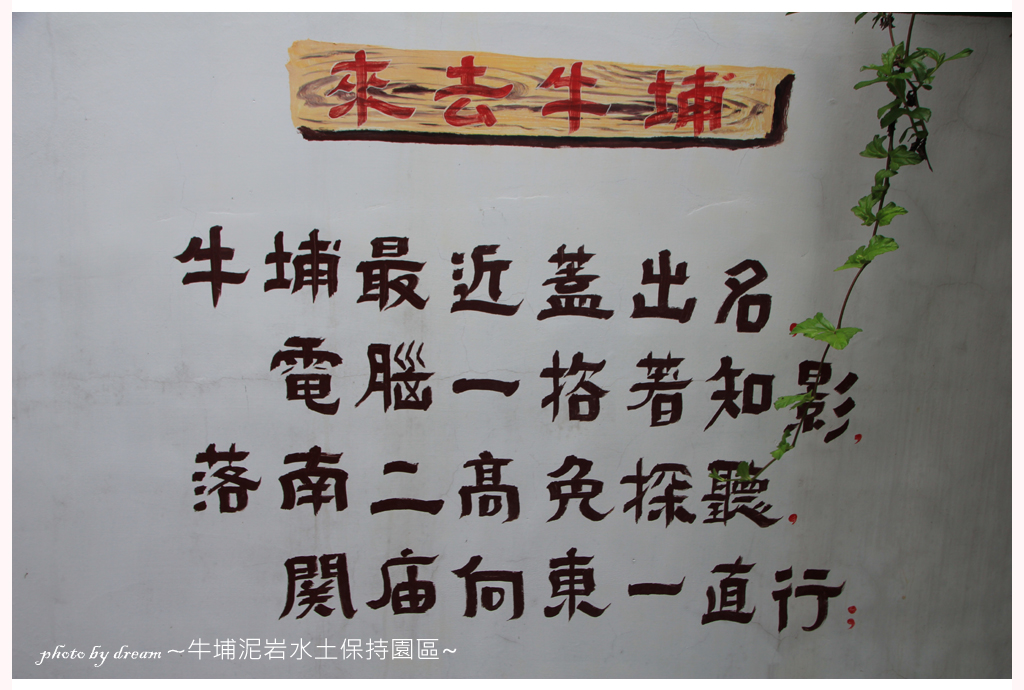 來去牛埔
牛埔最近蓋出名,
電腦一撘著知影,
落南二高免探聽,
関庙向東一直行;
photo by dream ~牛埔泥岩水土保持園區~